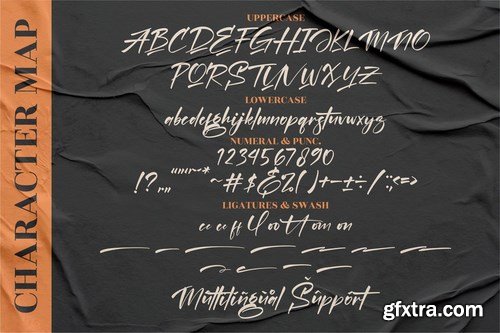 CHARACTER MAP
UPPERCASE
ABCDEFGHIJKLMNO
PQRSTUVWXYZ
LOWERCASE
abcdefghijklmnopqrstuvwxyz
NUMERAL & PUNC.
1234567890
LIGATURES & SWASH
Multilingual Support
gfxtra.com